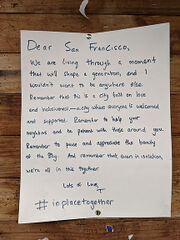 Dear San Francisco,
We are living through a moment
that will shape a generation, and I
wouldn't want to be anywhere else.
Remember that this is a city built on love
and inclusiveness — a city where everyone is welcomed
and supported. Remember to help your
neighbors and be patient with those around you.
Remember to pause and appreciate the beauty
of the Bay. And remember that even in isolation,
we're all in this together.
Lots of Love,
T
#inplacetogether